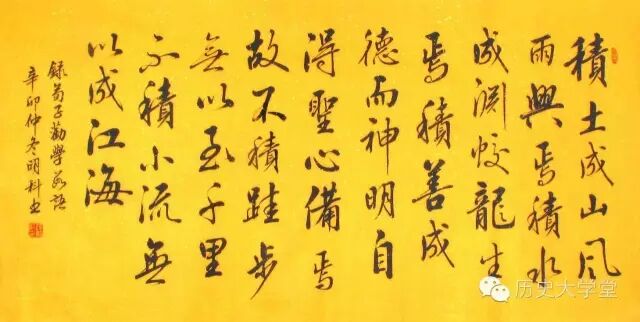 積土成山風
雨興焉積水
成渊蛟龍生
焉積善成
德而神明自
得聖心備焉
故不積跬步
無以至千里
不積小流無
以成江海
錄荀子勸學語
辛卯仲冬明科书
历史大学堂